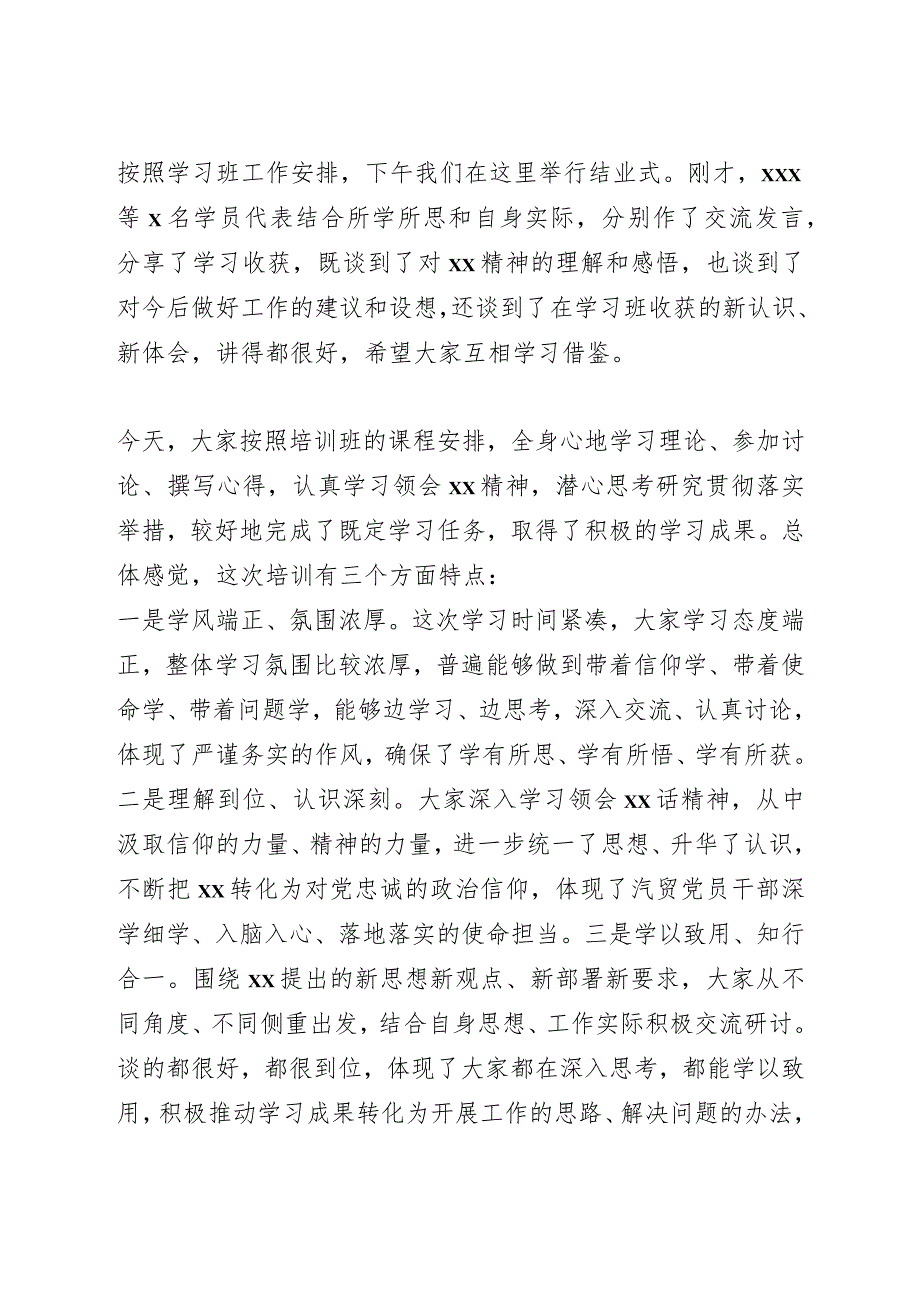 按照学习班工作安排，下午我们在这里举行结业式。刚才，xxx
等 x 名学员代表结合所学所思和自身实际，分别作了交流发言，
分享了学习收获，既谈到了对 xx 精神的理解和感悟，也谈到了
对今后做好工作的建议和设想，还谈到了在学习班收获的新认识、
新体会，讲得都很好，希望大家互相学习借鉴。
今天，大家按照培训班的课程安排，全身心地学习理论、参加讨
论、撰写心得，认真学习领会 xx 精神，潜心思考研究贯彻落实
举措，较好地完成了既定学习任务，取得了积极的学习成果。总
体感觉，这次培训有三个方面特点：
一是学风端正、氛围浓厚。这次学习时间紧凑，大家学习态度端
正，整体学习氛围比较浓厚，普遍能够做到带着信仰学、带着使
命学、带着问题学，能够边学习、边思考，深入交流、认真讨论，
体现了严谨务实的作风，确保了学有所思、学有所悟、学有所获。
二是理解到位、认识深刻。大家深入学习领会 xx 话精神，从中
汲取信仰的力量、精神的力量，进一步统一了思想、升华了认识，
不断把 xx 转化为对党忠诚的政治信仰，体现了汽贸党员干部深
学细学、入脑入心、落地落实的使命担当。三是学以致用、知行
合一。围绕 xx 提出的新思想新观点、新部署新要求，大家从不
同角度、不同侧重出发，结合自身思想、工作实际积极交流研讨。
谈的都很好，都很到位，体现了大家都在深入思考，都能学以致
用，积极推动学习成果转化为开展工作的思路、解决问题的办法，